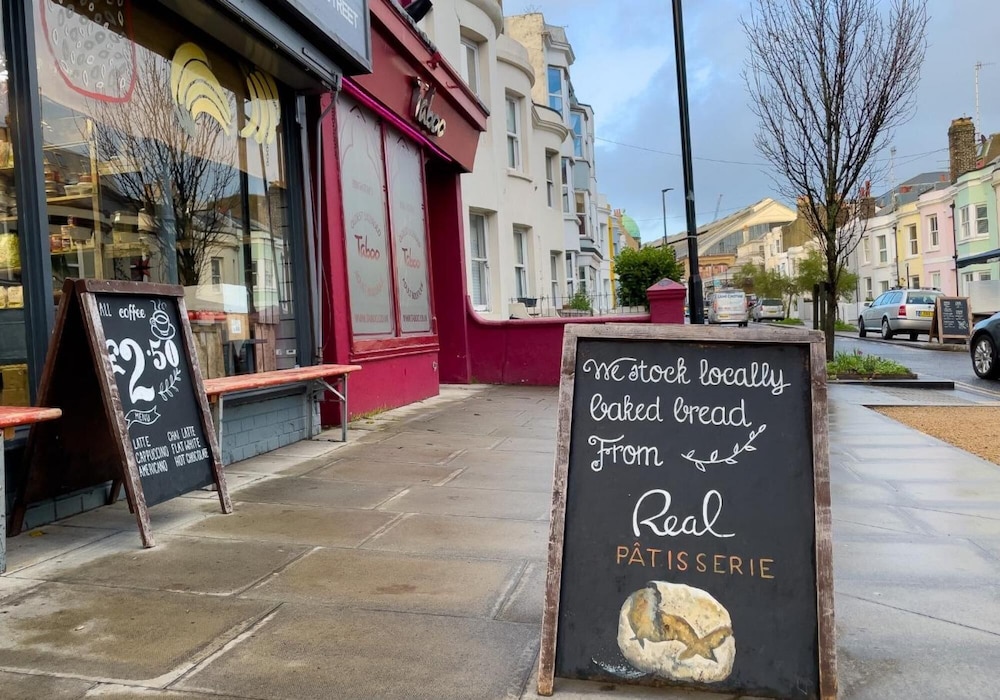 STREET
Taboo
Taboo
Taboo
ALL coffee
£2.50
MENU
LATTE
CAPPUCCINO
AMERICANO
CHAI LATTE
FLAT WHITE
HOT CHOCOLATE
We stock locally
baked bread
From
Real
PÂTISSERIE